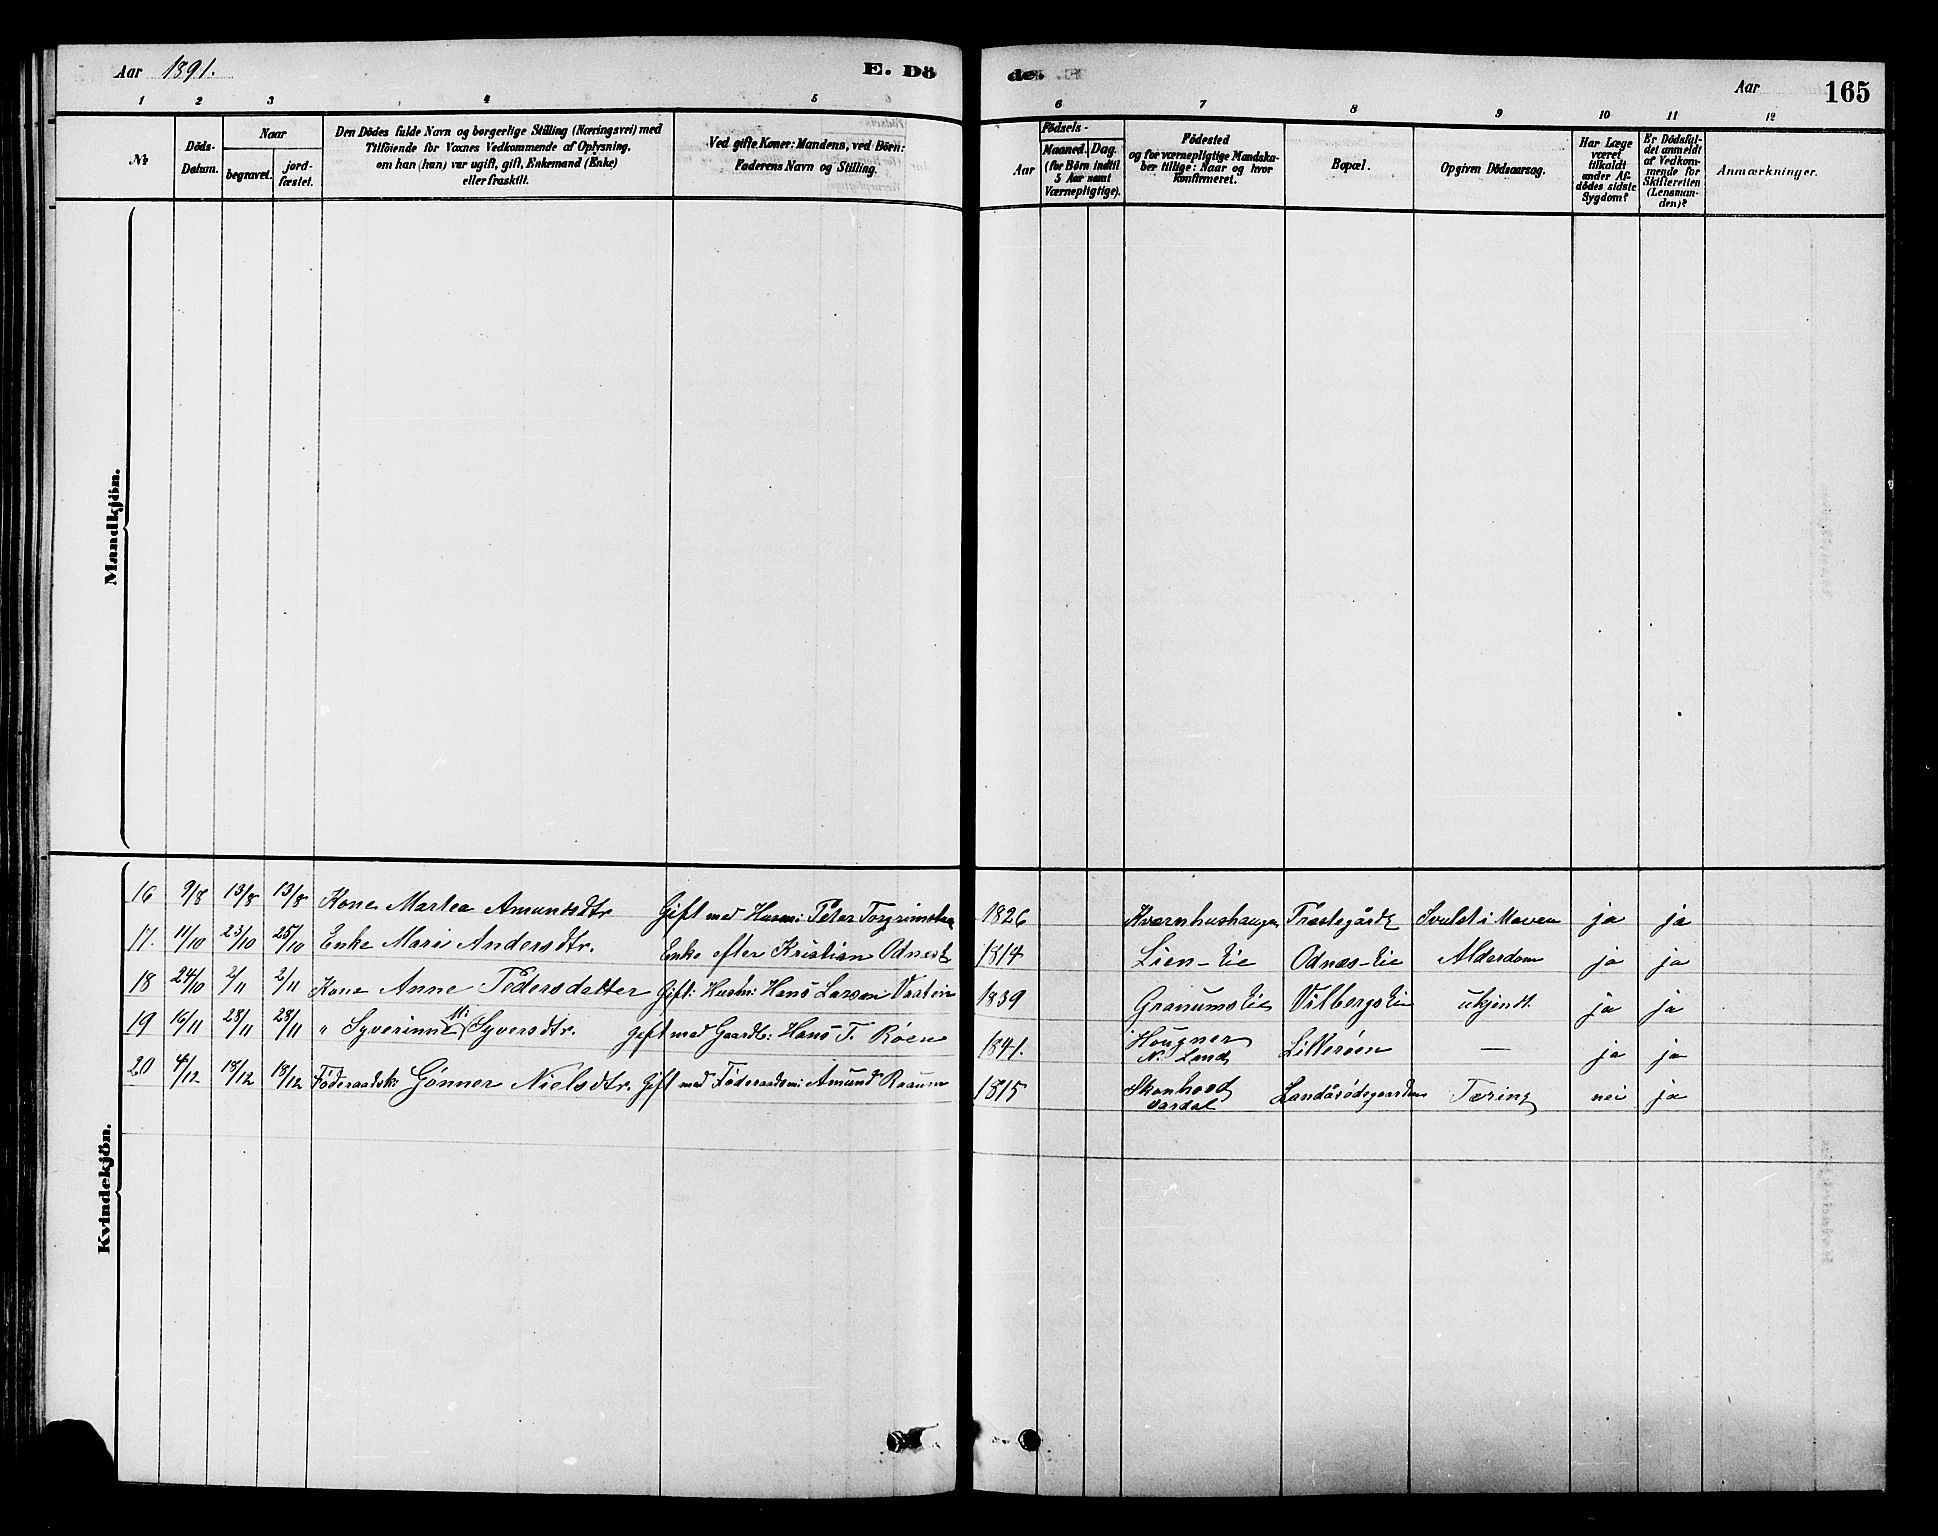 Aar 1891. E. Dö de. Aar 165
1 2 3 4 5 6 7 8 9 10 11 12
No
Döds-Datum.
Naar
begravet. jord-fæstet.
Den Dödes fulde Navn og borgerlige Stilling (Næringsvei) med
Tilföiende for Voxnes Vedkommende af Oplysning,
om han (hun) var ugift, gift, Enkemand (Enke)
eller fraskilt.
Ved gifte Koner: Mandens, ved Börn:
Faderens Navn og Stilling.
Födsels-
Aar Maaned. Dag.
(for Börn indtil
5 Aar samt
Værnepligtige).
Födested
og for værnepligtige Mandska-
ber tillige: Naar og hvor
konfirmeret.
Bopæl.
Opgiven Dödsaarsag.
Har Læge
været
tilkaldt
under Af-
dödes sidste
Sygdom?
Er Dödsfal-
det anmeldt
af Vedkom-
mende for
Skifteretten
(Lensman-
den)?
Anmærkninger.
Mandkjön.
Kvindekjön.
16 9/8 13/8 13/8 Kone Martea Amundsdtr Gift med Husm: Peter 1826 Kværnhushaugen Svulst i Maven ja ja
17. 11/10 23/10 25/10 Enke Mari Andersdtr. Enke efter Kristian 1814 Lien-Eie Odnæs-Eie Alderdom ja ja
18 24/10 2/11 2/11 Kone Anne Pedersdatter Gift: Husm: Hans Larsen 1839 Granums Eie Vilbergs Eie ukjendt ja ja
19 16/11 28/11 28/11 " Syverinne M. Syversdtr. gift med Gaardb: Hans T. Röen 1841. Hougner N. Land Lilleröen — ja ja
20 4/12 18/12 18/12 Föderaadsk: Gönner Nielsdtr. Gift med Föderaadsm: Amund Raaum 1815 Vardal Landåsödegaarden Tæring nei ja